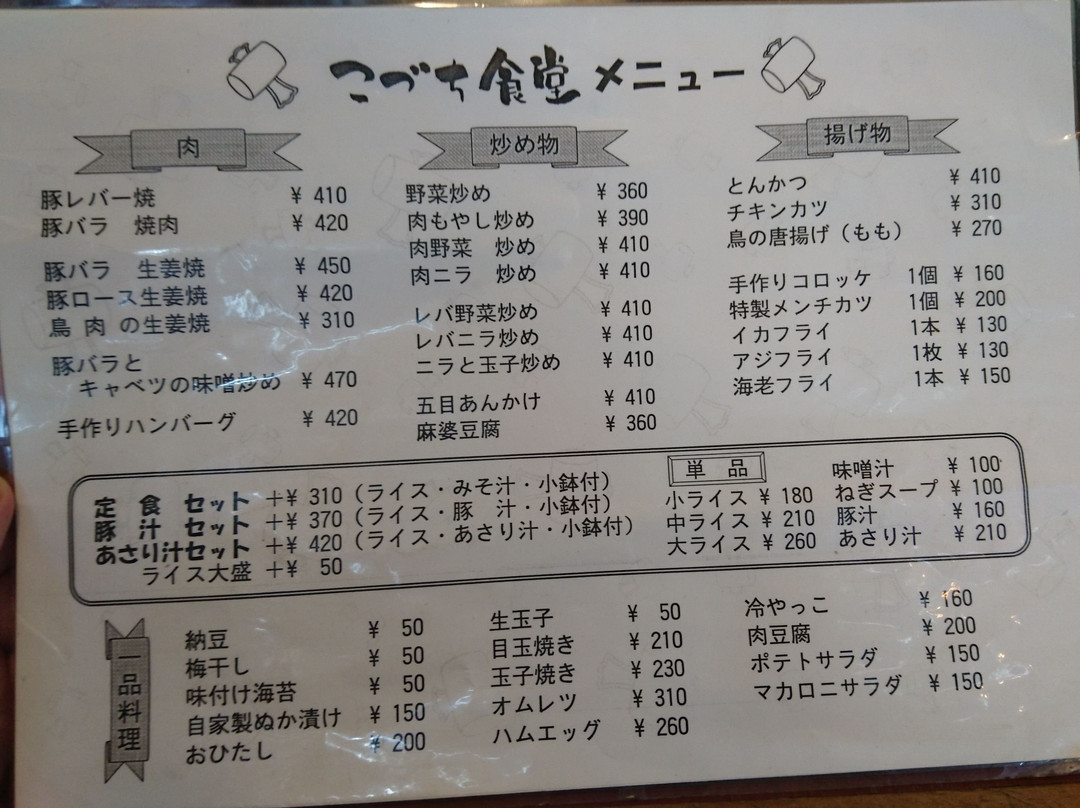 こづち食堂メニュー
肉
豚レバー焼 ¥ 410
豚バラ 焼肉 ¥ 420
豚バラ 生姜焼 ¥ 450
豚ロース生姜焼 ¥ 420
鳥肉の生姜焼 ¥ 310
豚バラと
キャベツの味噌炒め ¥ 470
手作りハンバーグ ¥ 420
炒め物
野菜炒め ¥ 360
肉もやし炒め ¥ 390
肉野菜 炒め ¥ 410
肉ニラ 炒め ¥ 410
レバ野菜炒め ¥ 410
レバニラ炒め ¥ 410
ニラと玉子炒め ¥ 410
五目あんかけ ¥ 410
麻婆豆腐 ¥ 360
揚げ物
とんかつ ¥ 410
チキンカツ ¥ 310
鳥の唐揚げ（もも） ¥ 270
手作りコロッケ 1個 ¥ 160
特製メンチカツ 1個 ¥ 200
イカフライ 1本 ¥ 130
アジフライ 1枚 ¥ 130
海老フライ 1本 ¥ 150
定食セット +¥ 310（ライス・みそ汁・小鉢付）
豚汁セット +¥ 370（ライス・豚 汁・小鉢付）
あさり汁セット +¥ 420（ライス・あさり汁・小鉢付）
ライス大盛 +¥ 50
単品
小ライス ¥ 180
中ライス ¥ 210
大ライス ¥ 260
味噌汁 ¥ 100
ねぎスープ ¥ 100
豚汁 ¥ 160
あさり汁 ¥ 210
一品料理
納豆 ¥ 50
梅干し ¥ 50
味付け海苔 ¥ 50
自家製ぬか漬け ¥ 150
おひたし ¥ 200
生玉子 ¥ 50
目玉焼き ¥ 210
玉子焼き ¥ 230
オムレツ ¥ 310
ハムエッグ ¥ 260
冷やっこ ¥ 160
肉豆腐 ¥ 200
ポテトサラダ ¥ 150
マカロニサラダ ¥ 150